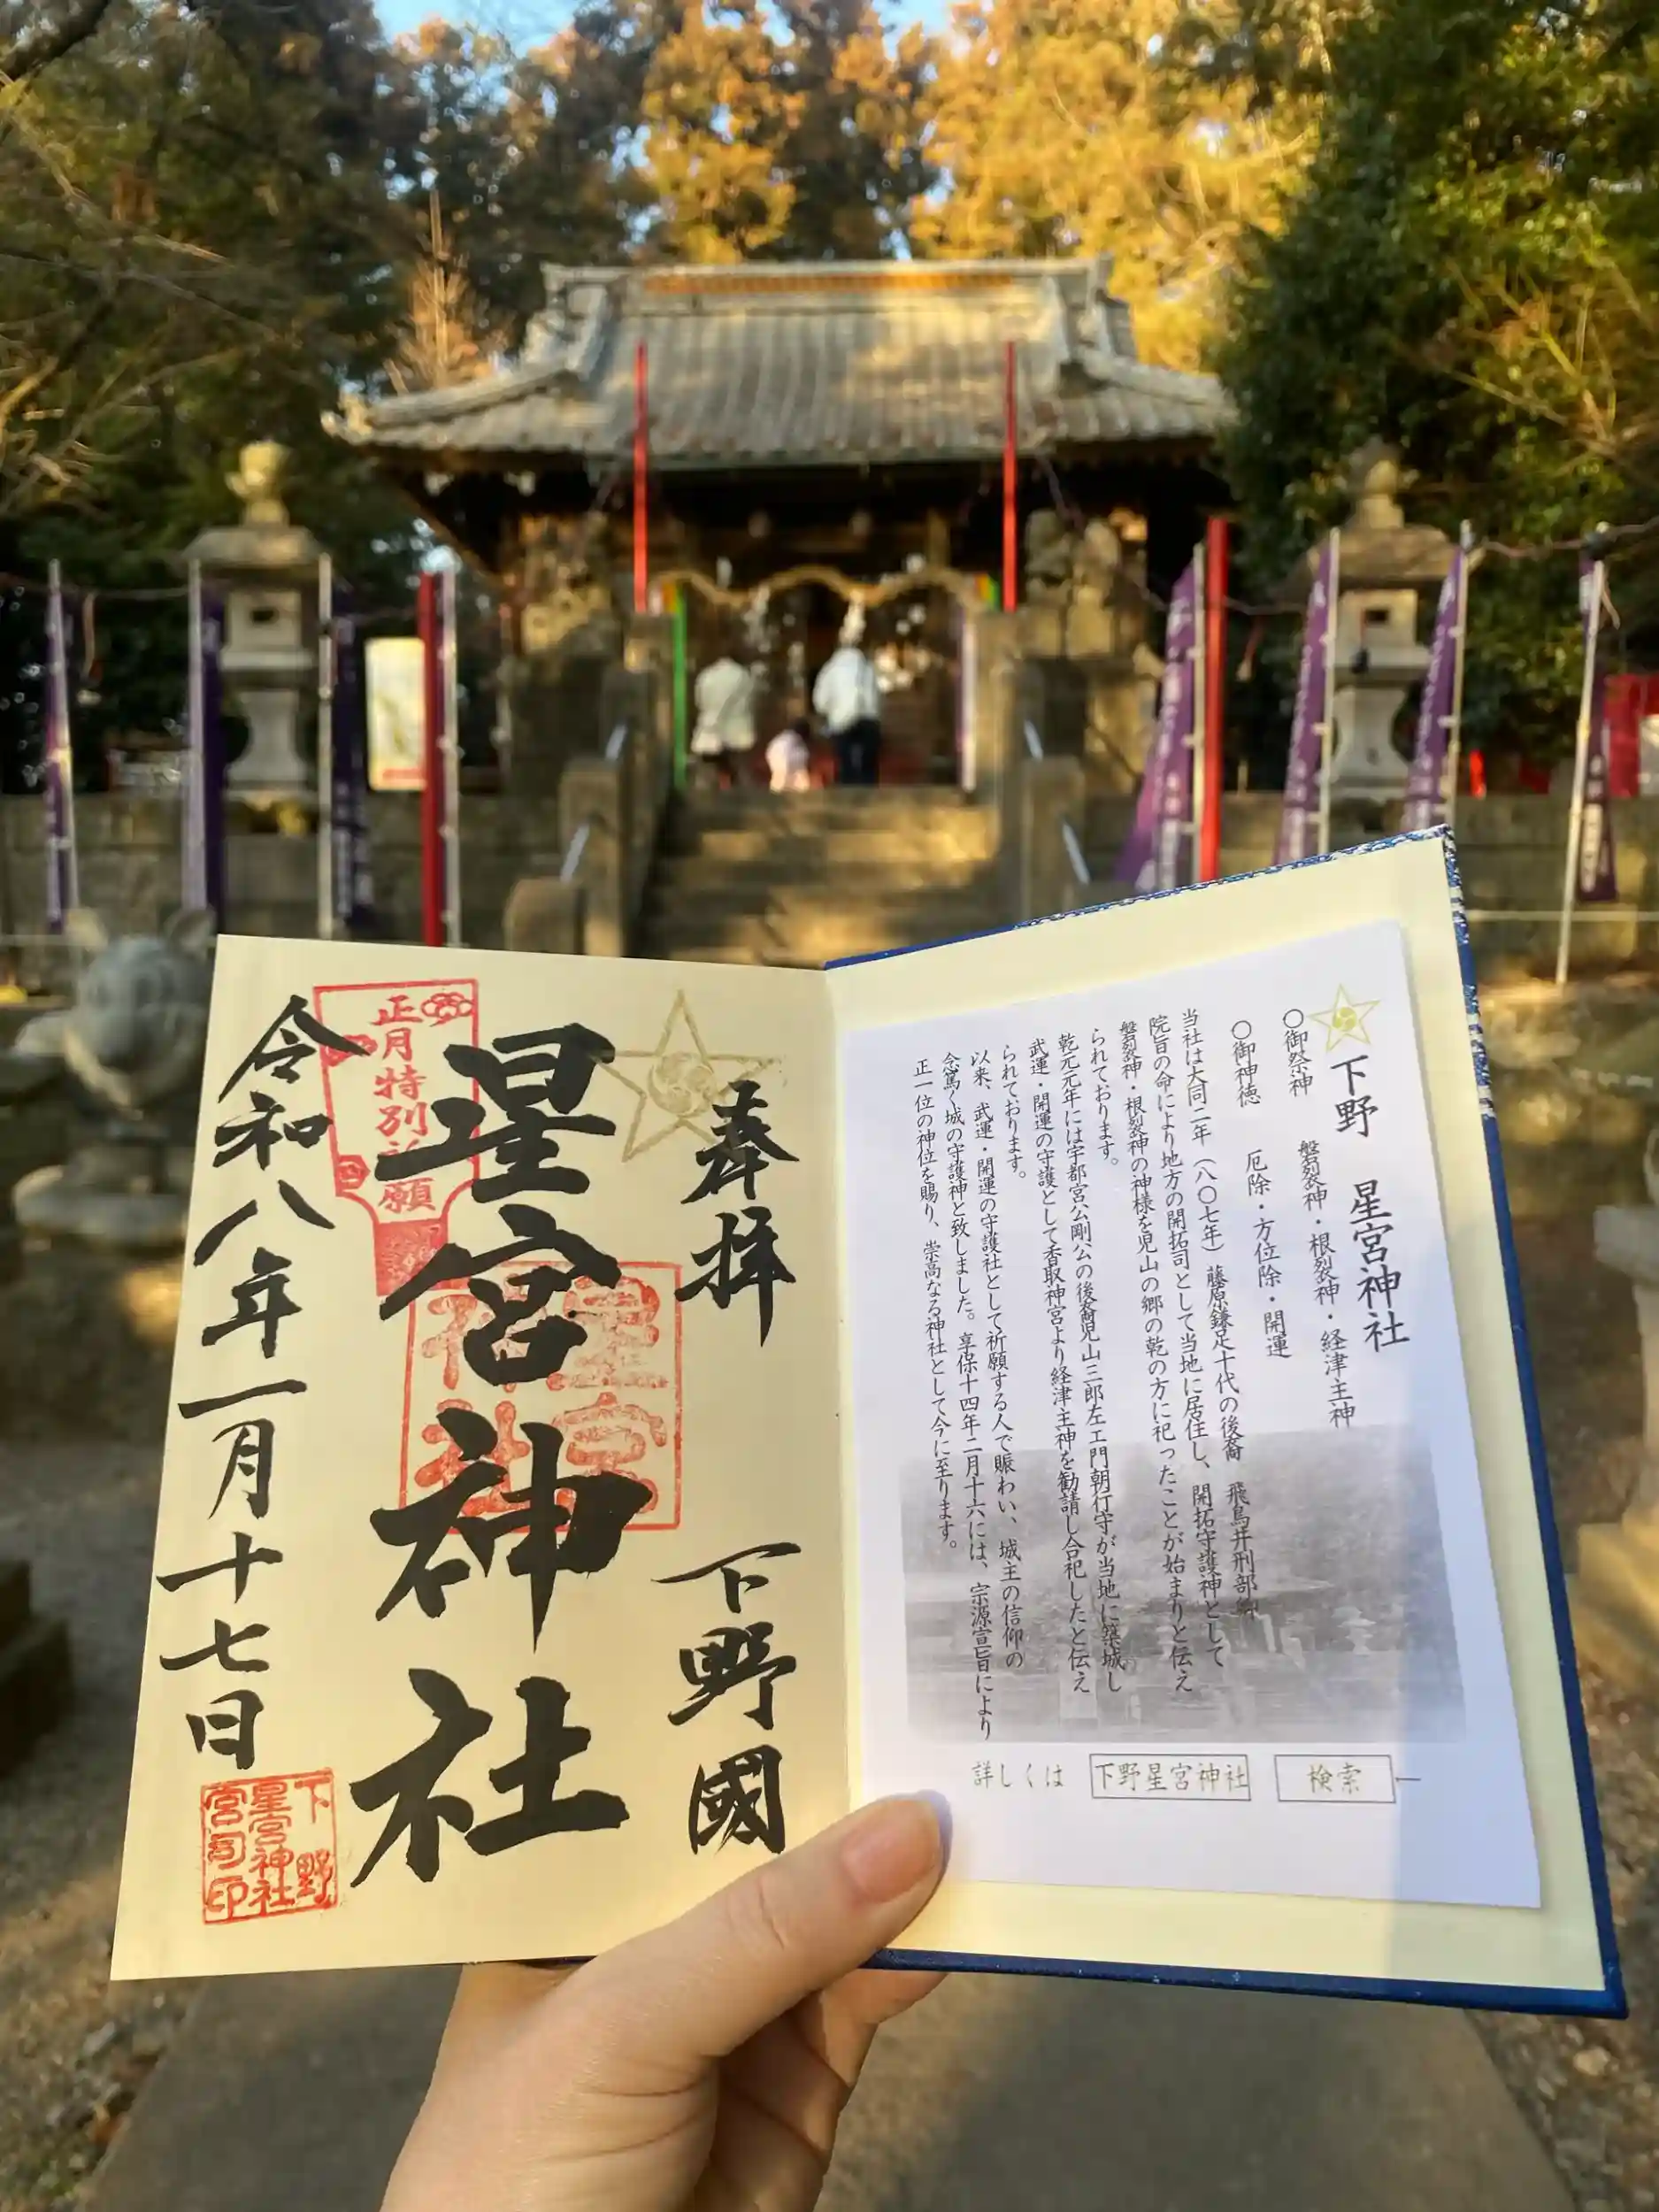 下野 星宮神社
〇御祭神 磐裂神・根裂神・経津主神
〇御神徳 厄除・方位除・開運
当社は大同二年（八〇七年）藤原鎌足十代の後裔 飛鳥井刑部卿
院旨の命により地方の開拓司として当地に居住し、開拓守護神として
磐裂神・根裂神の神様を児山の郷の乾の方に祀ったことが始まりと伝え
られております。
乾元元年には宇都宮公剛公の後裔児山三郎左エ門朝行守が当地に築城し
武運・開運の守護として香取神宮より経津主神を勧請し合祀したと伝え
られております。
以来、武運・開運の守護社として祈願する人で賑わい、城主の信仰の
念篤く城の守護神と致しました。享保十四年二月十六には、宗源宣旨により
正一位の神位を賜り、崇高なる神社として今に至ります。
詳しくは 下野星宮神社 検索
奉拝 下野國
星宮神社
正月特別祈願
星宮神社
令和八年一月十七日
下野
星宮神社
宮司印